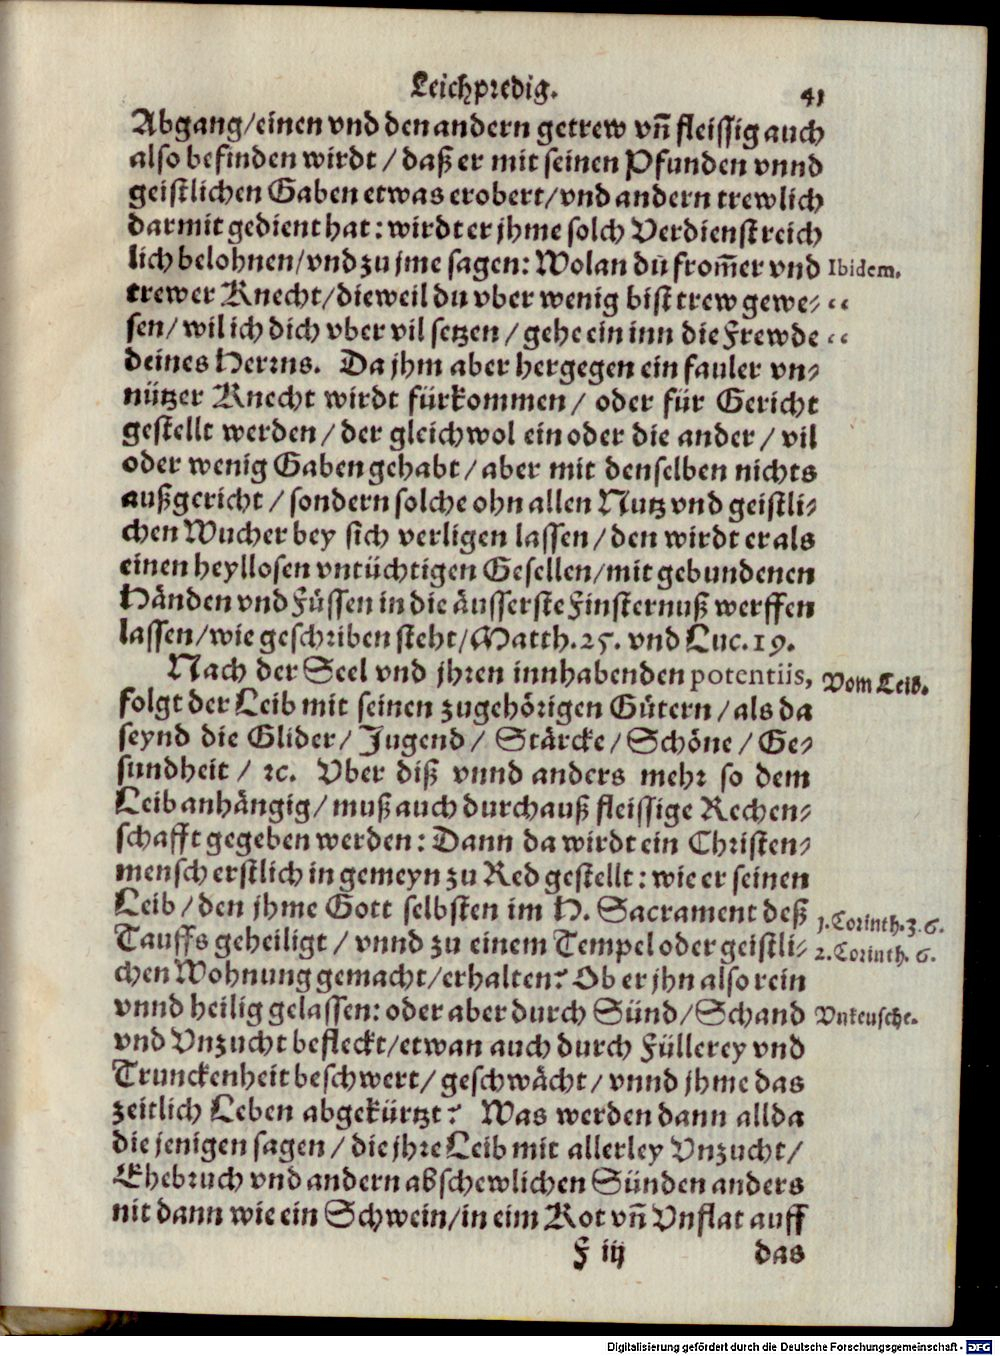 Leichpredig. 41
Abgang/einen vnd den andern getrew vñ fleissig auch
also befinden wirdt / daß er mit seinen Pfunden vnnd
geistlichen Gaben etwas erobert/vnd andern trewlich
darmit gedient hat: wirdt er jhme solch Verdienst reich
lich belohnen/vnd zu jme sagen: Wolan du from̃er vnd Ibidem.
trewer Knecht/dieweil du vber wenig bist trew gewe- “
sen/ wil ich dich vber vil setzen / gehe ein inn die Frewde “
deines Herrns. Da jhm aber hergegen ein fauler vn-
nützer Knecht wirdt fürkommen / oder für Gericht
gestellt werden / der gleichwol ein oder die ander / vil
oder wenig Gaben gehabt / aber mit denselben nichts
außgericht / sondern solche ohn allen Nutz vnd geistli-
chen Wucher bey sich verligen lassen / den wirdt er als
einen heyllosen vntüchtigen Gesellen/mit gebundenen
Händen vnd Füssen in die äusserste Finsternuß werffen
lassen/wie geschriben steht/Matth.25. vnd Luc.19.
Nach der Seel vnd jhren innhabenden potentiis, Vom Leib.
folgt der Leib mit seinen zugehörigen Gütern / als da
seynd die Glider/ Jugend/ Stärcke/ Schöne/ Ge-
sundheit / ꝛc. Vber diß vnnd anders mehr so dem
Leib anhängig/ muß auch durchauß fleissige Rechen-
schafft gegeben werden: Dann da wirdt ein Christen-
mensch erstlich in gemeyn zu Red gestellt: wie er seinen
Leib / den jhme Gott selbsten im H. Sacrament deß 1.Corinth.3.6.
Tauffs geheiligt / vnnd zu einem Tempel oder geistli- 2.Corinth. 6.
chen Wohnung gemacht/erhalten? Ob er jhn also rein
vnnd heilig gelassen: oder aber durch Sünd/Schand Vnkeusche.
vnd Vnzucht befleckt/etwan auch durch Füllerey vnd
Trunckenheit beschwert/ geschwächt/ vnnd jhme das
zeitlich Leben abgekürtzt? Was werden dann allda
die jenigen sagen / die jhre Leib mit allerley Vnzucht/
Ehebruch vnd andern abschewlichen Sünden anders
nit dann wie ein Schwein/in eim Kot vñ Vnflat auff
F iij das
Digitalisierung gefördert durch die Deutsche Forschungsgemeinschaft - DFG